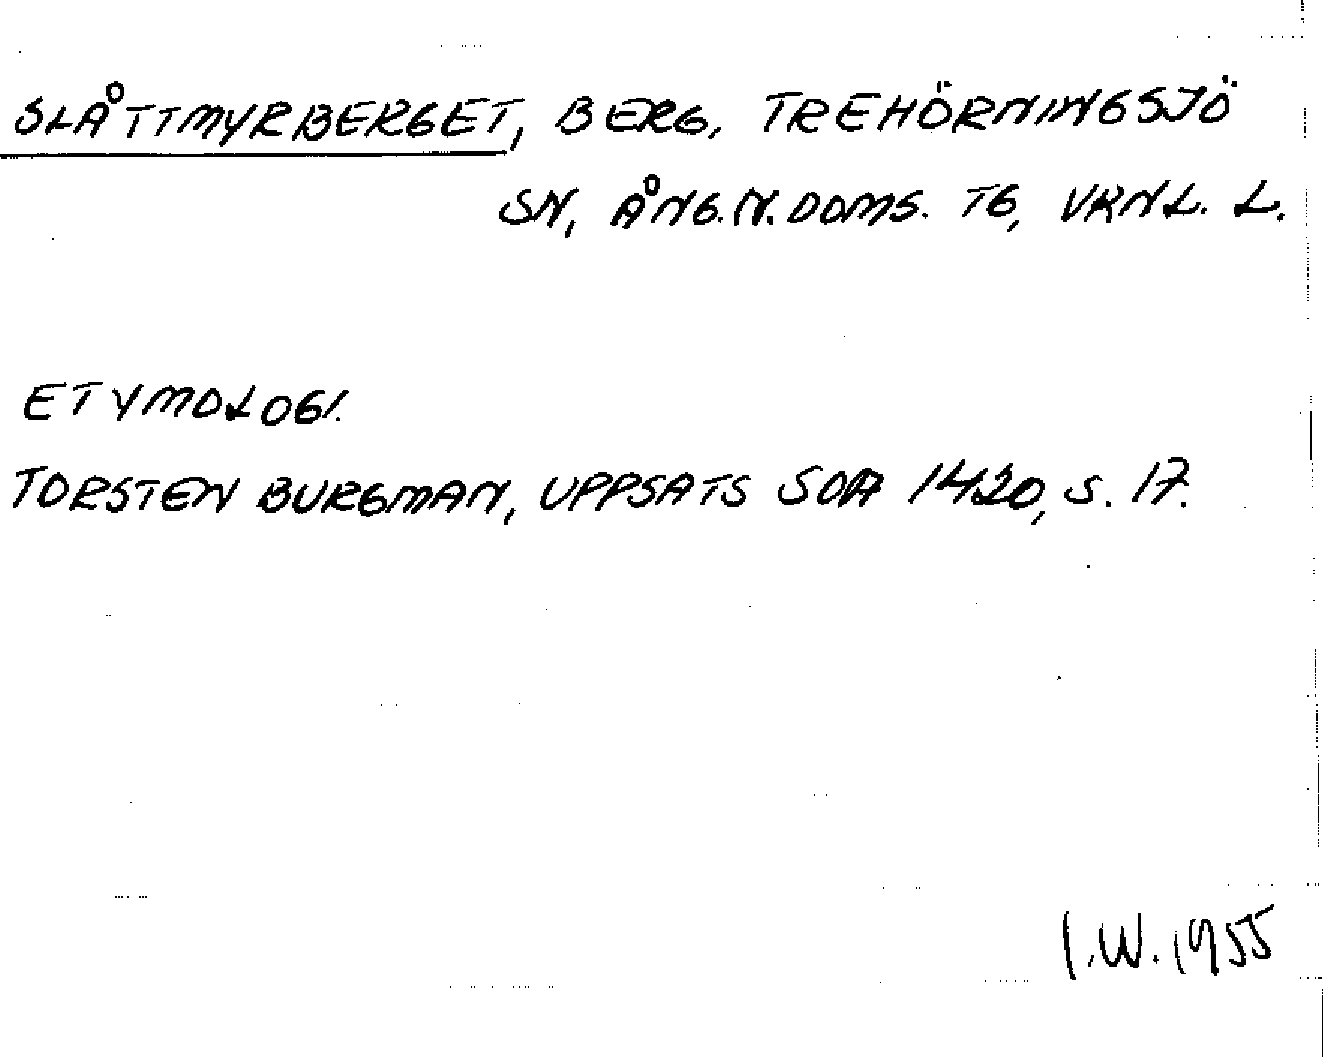 SLÅTTMYRBERGET, BERG, TREHÖRNINGSJÖ
SN, ÅNG.N.DOMS. TG, VRNL. L.
ETYMOLOGI.
TORSTEN BURGMAN, UPPSATS SOA 1420, S. 17.
I.W. 1955